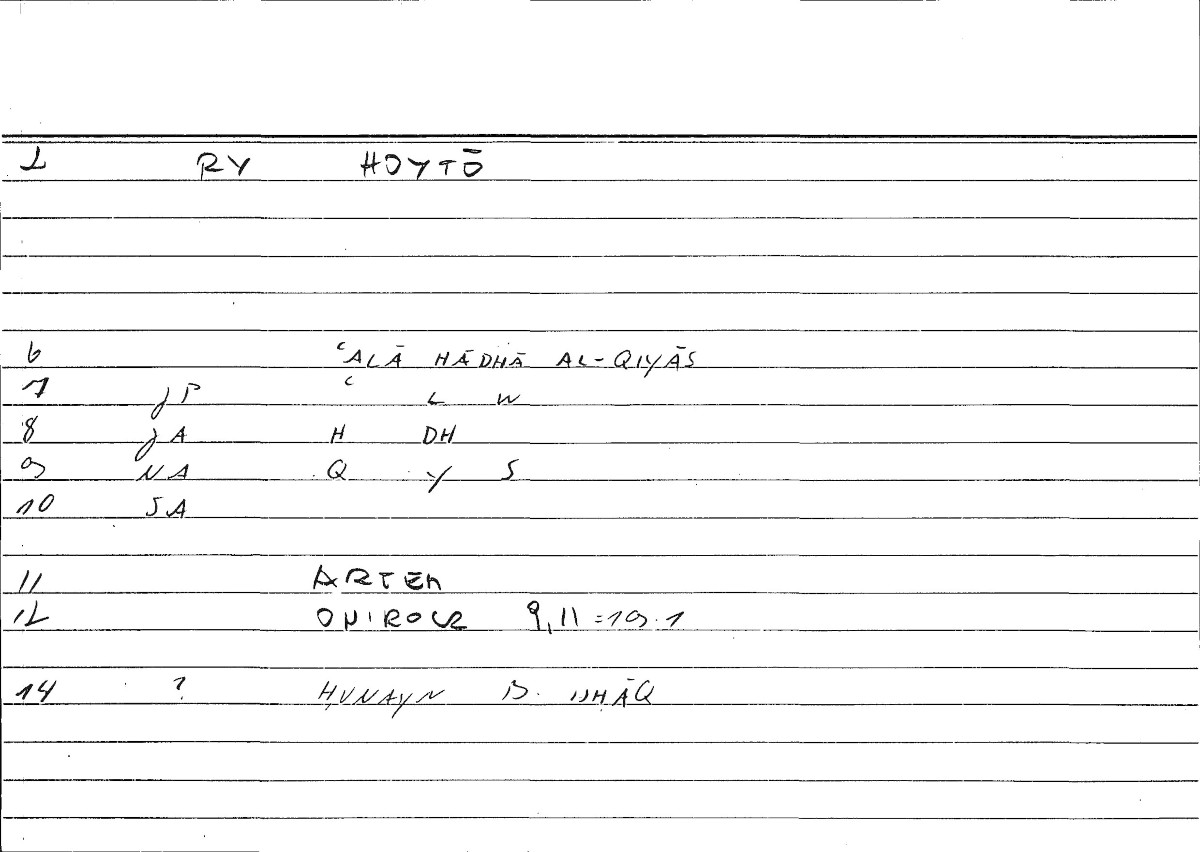 1 RY HOYTŌ
6 ʿALĀ HĀDHĀ AL-QIYĀS
7 JP ʿ L W
8 JA H DH
9 NA Q Y S
10 SA
11 ARTEM
12 ONIROCR 9,11 = 19.1
14 ? ḤUNAYN B. ISḤĀQ